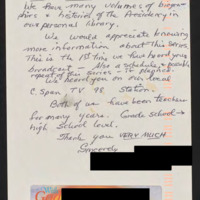 We have many volumes of biogra-
phies & pretorial of the Presidency in
our personal library.
We would appreciate knowing
more information about this series.
This is the 1st time we have heard your
broadcast – Also a schedule, & possible
repeat of this series - it planned.
We heard you on our local
C. Span, TV 98 Station.
Both of us have been teachers
for many years. Grade school →
high school level.
Thank you VERY MUCH.
Sincerely